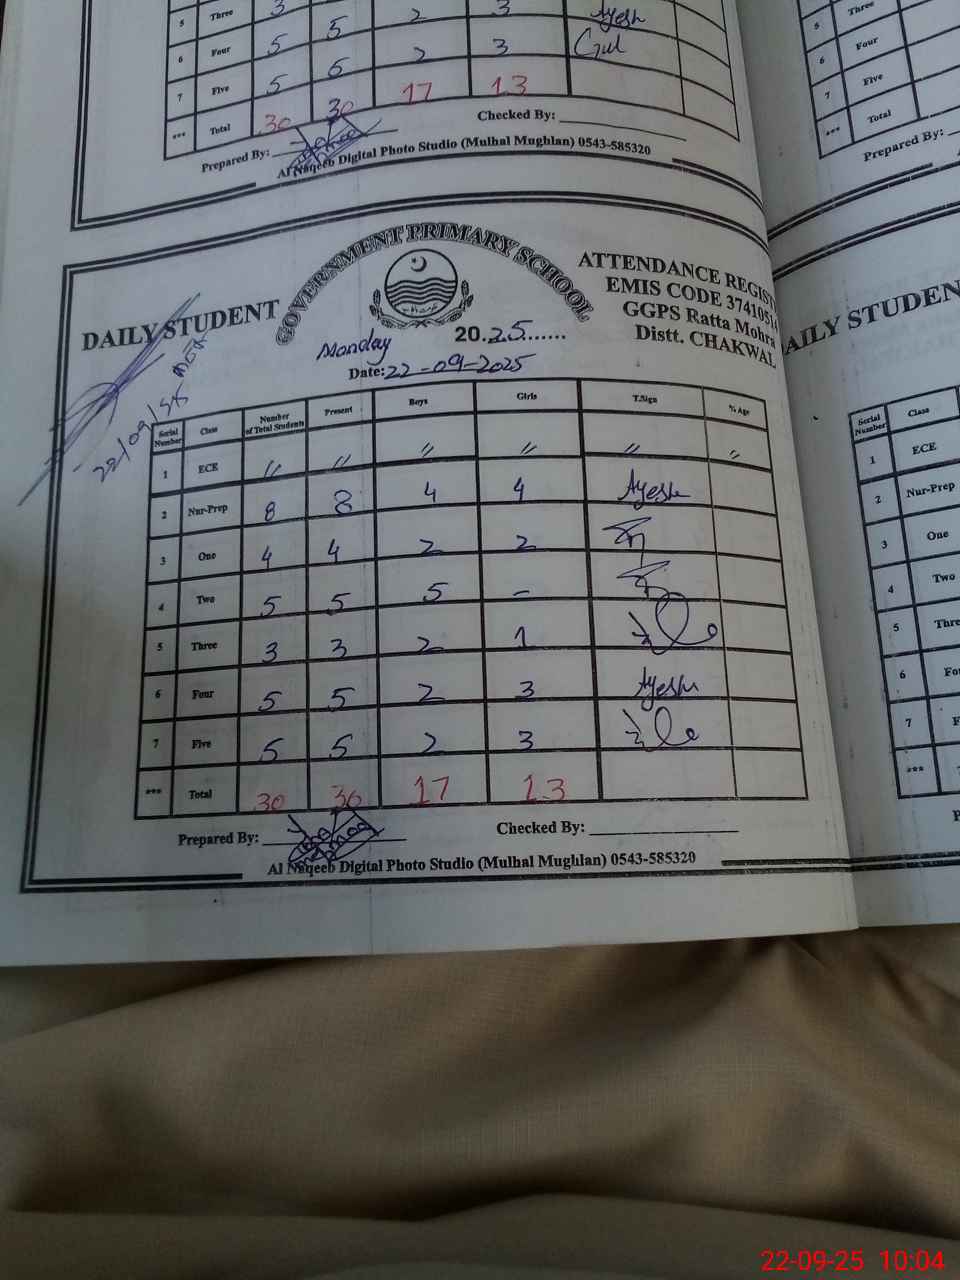 5 Three 3 5 2 3 Ayesh
6 Four 5 5 2 3 Gul
7 Five 5 6
*** Total 30 30 17 13
Prepared By: Checked By:
Al Naqeeb Digital Photo Studio (Mulhal Mughlan) 0543-585320
GOVERNMENT PRIMARY SCHOOL
DAILY STUDENT
ATTENDANCE REGIST
EMIS CODE 3741051
GGPS Ratta Mohra
Distt. CHAKWAL
22/09/25
Monday 20.25.......
Date: 22-09-2025
Serial Number Class Number of Total Students Present Boys Girls T.Sign % Age
1 ECE " " " " " "
2 Nur-Prep 8 8 4 4 Ayesh
3 One 4 4 2 2
4 Two 5 5 5 -
5 Three 3 3 2 1
6 Four 5 5 2 3 Ayesh
7 Five 5 5 2 3
*** Total 30 30 17 13
Prepared By: Checked By:
Al Naqeeb Digital Photo Studio (Mulhal Mughlan) 0543-585320
5 Three
6 Four
7 Five
*** Total
Prepared By:
AILY STUDEN
Serial Number Class
1 ECE
2 Nur-Prep
3 One
4 Two
5 Thre
6 Fo
7 F
***
22-09-25 10:04